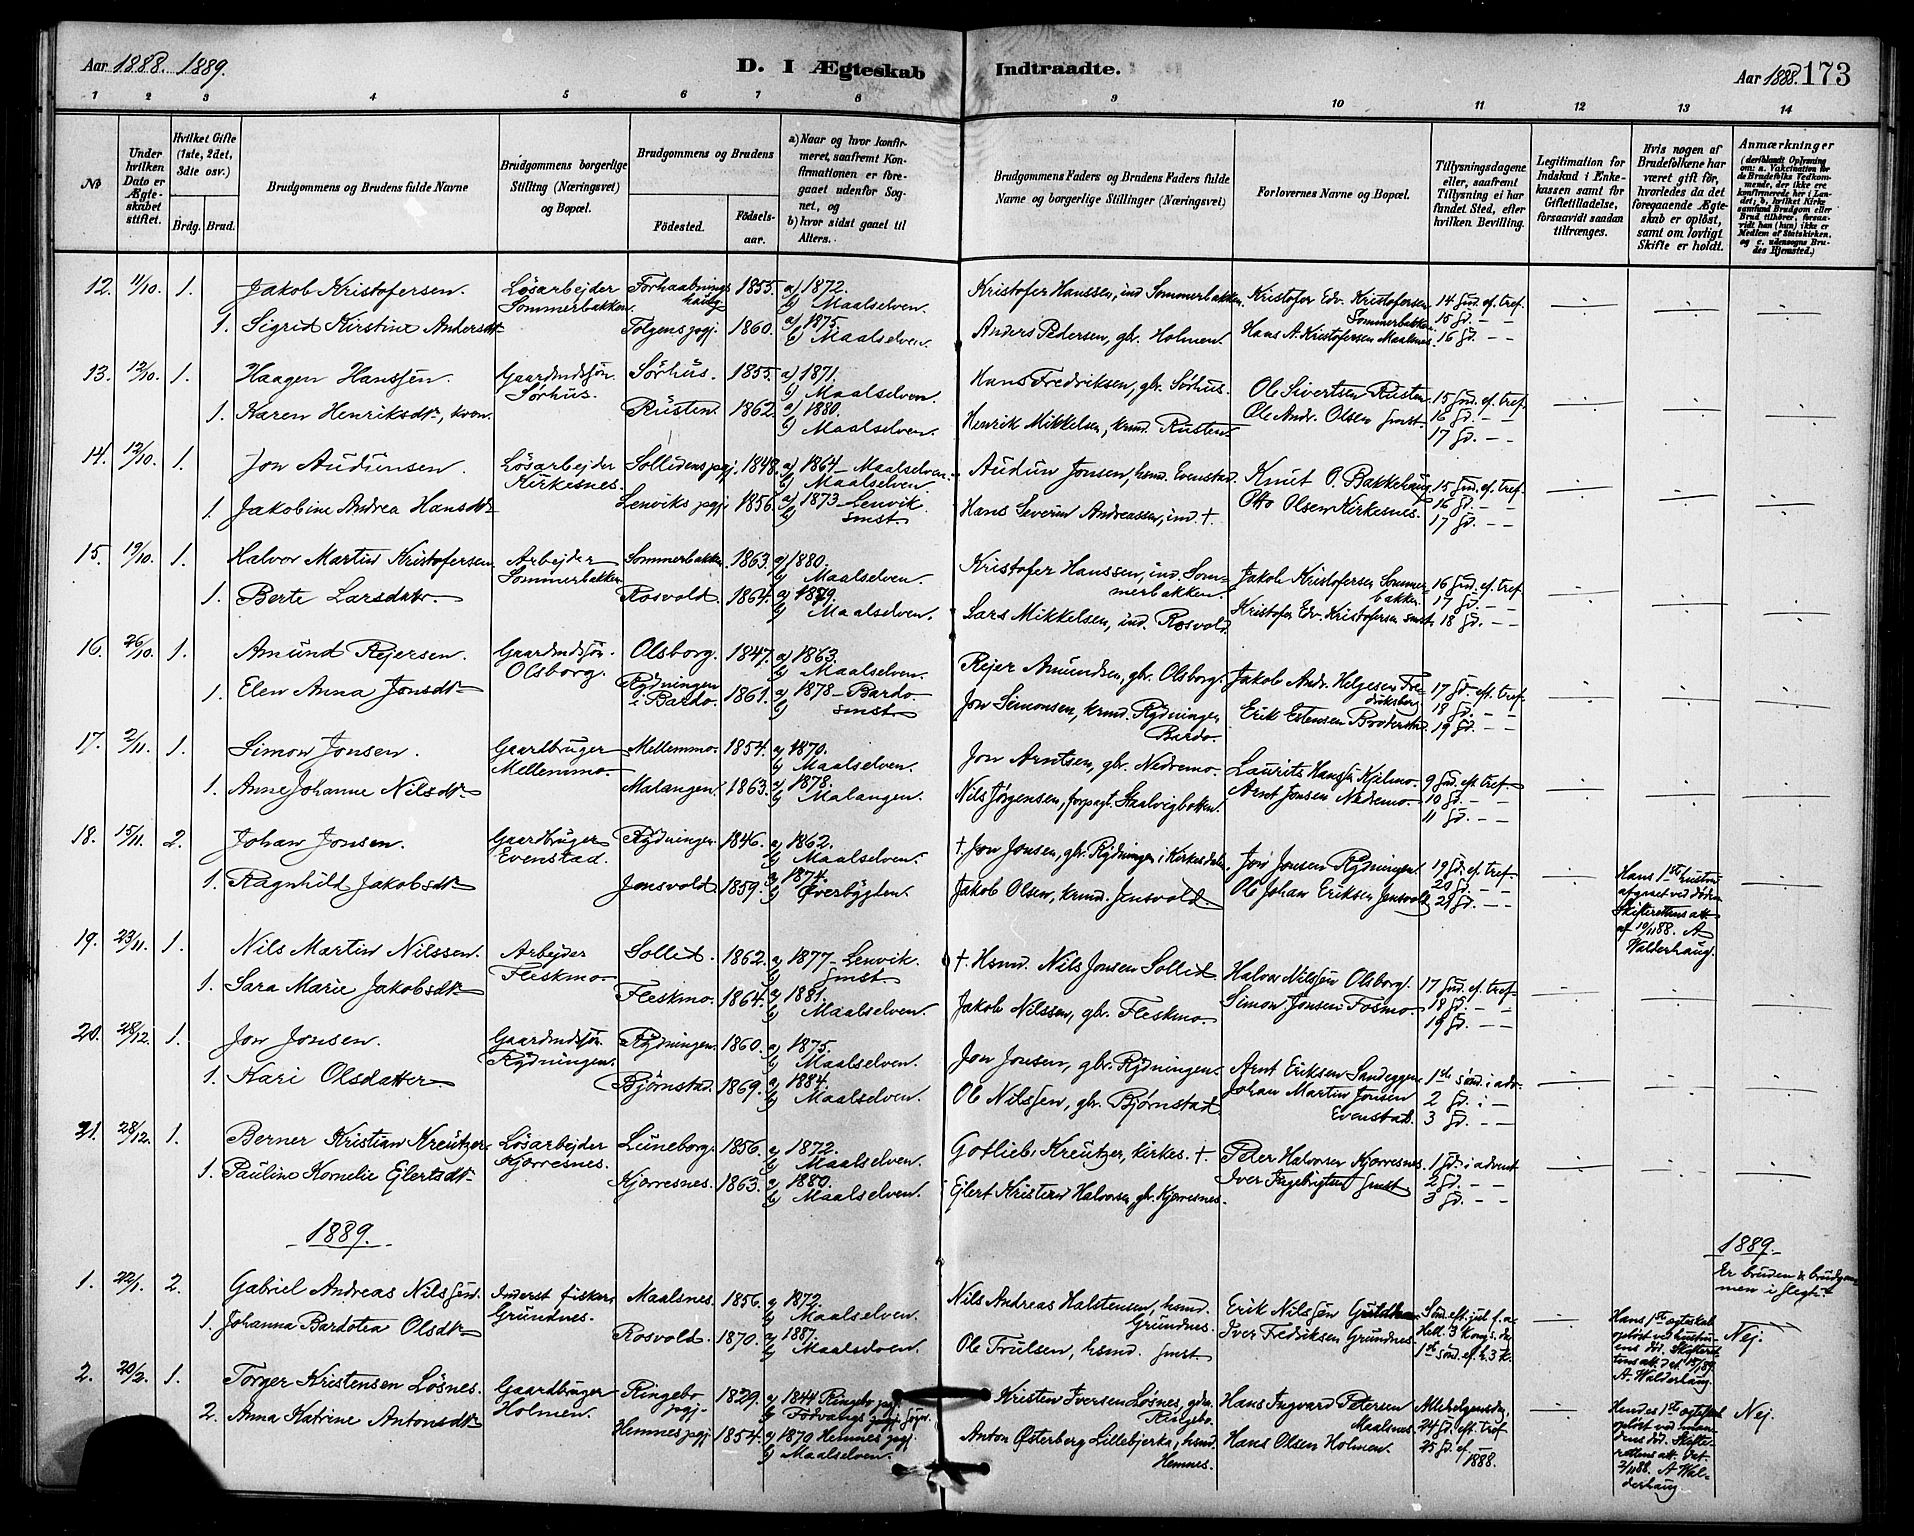 Aar 1888. 1889.
D. I Ægteskab Indtraadte.
Aar 1888. 173
1 2 3 4 5 6 7 8 9 10 11 12 13 14
No
Under hvilken Dato er Ægteskabet stiftet.
Hvilket Gifte (1ste, 2det, 3die osv.)
Brdg. Brud.
Brudgommens og Brudens fulde Navne
Brudgommens borgerlige Stilling (Næringsvei) og Bopæl.
Brudgommens og Brudens
Födested.
Födselsaar.
a) Naar og hvor konfirmeret, saafremt Konfirmationen er foregaaet udenfor Sognet, og
b) hvor sidst gaaet til Alters.
Brudgommens Faders og Brudens Faders fulde Navne og borgerlige Stillinger (Næringsvei)
Forlovernes Navne og Bopæl.
Tillysningsdagene eller, saafremt Tillysning ei har fundet Sted, efter hvilken Bevilling.
Legitimation for Indskud i Enkekassen samt for Giftetilladelse, forsaavidt saadan tiltrænges.
Hvis nogen af Brudefolkene har været gift för, hvorledes da det foregaaende Ægteskab er oplöst, samt om lovligt Skifte er holdt.
Anmærkninger
12. 11/10. 1. Jakob Kristofersen. Løsarbejder Sommerbakken. Forhaabningshaug 1855. a) 1872. b) Maalselven. Kristofer Hanssen, ind. Sommerbakken. Kristofer Edv. Kristofersen Sommerbakken. 14 Snd. ef. tref.
1. Sigrid Kirstine Andersdtr Tolgens pgj. 1860. a) 1875. b) Maalselven. Anders Pedersen, gbr. Holmen. Hans A. Kristofersen Maalsnes. 15 Sd. — — 16 Sd. — —
13. 12/10. 1. Haagen Hanssen. Gaardmdssøn Sørhus. Sørhus. 1855. a) 1871. b) Maalselven. Hans Fredriksen, gbr. Sørhus. Ole Sivertsen Rusten 15 Snd. ef. tref.
1. Karen Henriksdtr, kvæn. Rusten. 1862. a) 1880. b) Maalselven. Henrik Mikkelsen, krmd. Rusten. Ole Andr. Olsen smst. 16 Sd. — — 17 Sd. — —
14. 12/10. 1. Jon Audunsen. Løsarbejder Kirkesnes. Sollidens pgj. 1848. a) 1864 — Maalselven. b) Maalselven. Audun Jonsen, hsmd. Evenstad. Knut O. Bakkehaug 15 Snd. ef. tref.
1. Jakobine Andrea Hansdtr Lenviks pgj. 1856. a) 1873 Lenvik. b) smst. Hans Severin Andreassen, ind. †. Otto Olsen Kirkesnes. 16 Sd. — — 17 Sd. — —
15. 19/10. 1. Halvor Martin Kristofersen Arbejder Sommerbakken Sommerbakken 1863. a) 1880. b) Maalselven. Kristofer Hanssen, ind. Sommerbakken. Jakob Kristofersen Sommerbakken 16 Snd. ef. tref.
1. Berte Larsdatter Rosvold. 1864. a) 1879. b) Maalselven. Lars Mikkelsen, ind. Rosvold. Kristofer Edv. Kristofersen smst. 17 Sd. — — 18 Sd. — —
16. 26/10. 1. Amund Rejersen. Gaardmdssøn. Olsborg. Olsborg. 1847. a) 1863. b) Maalselven. Rejer Amundsen, gbr. Olsborg. Jakob Andr. Helgesen Fredriksberg 17 Sd. eft. tref.
1. Elen Anna Jonsdtr Rydningen i Bardo. 1861. a) 1878 — Bardo b) smst. Jon Simonsen, krmd. Rydningen Bardo. Erik Estensen Broderstad. 18 Sd. — — 19 Sd. — —
17. 2/11. 1. Simon Jonsen. Gaardbruger Mellemmo. Mellemmo. 1854. a) 1870. b) Maalselven. Jon Arntsen, gbr. Nedremo. Laurits Hanssen Kjelmo 9 Snd. eft. tref.
1. Anne Johanne Nilsdtr Malangen. 1863. a) 1878. b) Malangen. Nils Jørgensen, forpagt. Staalvigbotten. Arnt Jonsen Nedremo. 10 Sd. — — 11 Sd. — —
18. 15/11. 2. Johan Jonsen. Gaardbruger Evenstad. Rydningen 1846. a) 1862. b) Maalselven. † Jon Jonsen, gbr. Rydningen i Kirkesdalen. Jon Jonsen Rydningen. 19 Sd. ef. tref.
1. Ragnhild Jakobsdtr Jensvold. 1859. a) 1874. b) Øverbygden. Jakob Olsen, krmd. Jensvold. Ole Johan Eriksen Jensvold 20 Sd. — — 21 Sd. — —
Hans 1ste hustru afgaaet ved døden Skifterettens att. af 10/11 88. A Walderhaug.
19. 23/11. 1. Nils Martin Nilssen. Arbejder Fleskmo. Sollid. 1862. a) 1877 — Lenvik. b) smst. † Hsmd. Nils Jonsen Sollid. Halvor Nilssen Olsborg. 17 Snd. ef. tref.
1. Sara Marie Jakobsdtr Fleskmo. 1864. a) 1881. b) Maalselven. Jakob Nilssen, gbr. Fleskmo. Simon Jonsen Fosmo. 18 Sd. — — 19 Sd. — —
20. 28/12. 1. Jon Jonsen. Gaardmdssøn Rydningen. Rydningen. 1860. a) 1875. b) Maalselven. Jon Jonsen, gbr. Rydningen. Arnt Eriksen Sandeggen 1ste sønd. i adv.
1. Kari Olsdatter Bjørnstad. 1869. a) 1884. b) Maalselven. Ole Nilssen, gbr. Bjørnstad. Johan Martin Jonsen Evenstad. 2 Sd. i — 3 Sd. — —
21. 28/12. 1. Berner Kristian Kreutzer Løsarbejder Kjærresnes. Luneborg. 1856. a) 1872. b) Maalselven. Gotlieb Kreutzer, kirkes. † Peter Halvorsen Kjærresnes. 1 Sd. i advent
1. Pauline Kornelie Ejlertsdtr Kjærresnes. 1863. a) 1880. b) Maalselven. Ejlert Kristian Halvorsen, gbr. Kjærresnes. Iver Ingebrigtsen smst. 2 Sd. — — 3 Sd. — —
1889. 1889.
Er bruden & brudgommen i slegt?
1. 22/1. 2. Gabriel Andreas Nilssen. Inderst fisker Grundnes. Maalsnes. 1856. a) 1872. b) Maalselven. Nils Andreas Halstensen, hsmd. Grundnes. Erik Nilssen
1. Johanna Bardotea Olsdtr Rosvold. 1870. a) 1887. b) Maalselven. Ole Trulsen, hsmd. smst. Iver Fredriksen Grundnes. Sønd. eft. jul f. a. Hell. 3 Kong. dag 1ste sønd. ef. h. 3 K.
Hans 1ste egteskab opløst ved hustruens død. Skifterettens att. det. A. Walderhaug. Nej.
2. 20/2. 1. Torger Kristensen Løsnes. Gaardbruger Holmen. Ringebo pgj. 1829. a) 1844 Ringebo pgj. b) Fodvangs pgj. Kristen Iversen Løsnes, gbr. Ringebo. Hans Ingvard Petersen Maalsnes. Allehelgensdag
2. Anna Katrine Antonsdtr Hemnes pgj. 1854. a) 1870 Hemnes pgj. b) Maalselven. Anton Østerberg Lillebjerka, hsmd. Hemnes. Hans Olsen Holmen. 24 Sd. eft. tref 25 Sd. ef. 1888.
Hendes 1ste egteskab opløst ved mandens død. Skifterettens att. det. 2/11 88. A Walderhaug Nej.